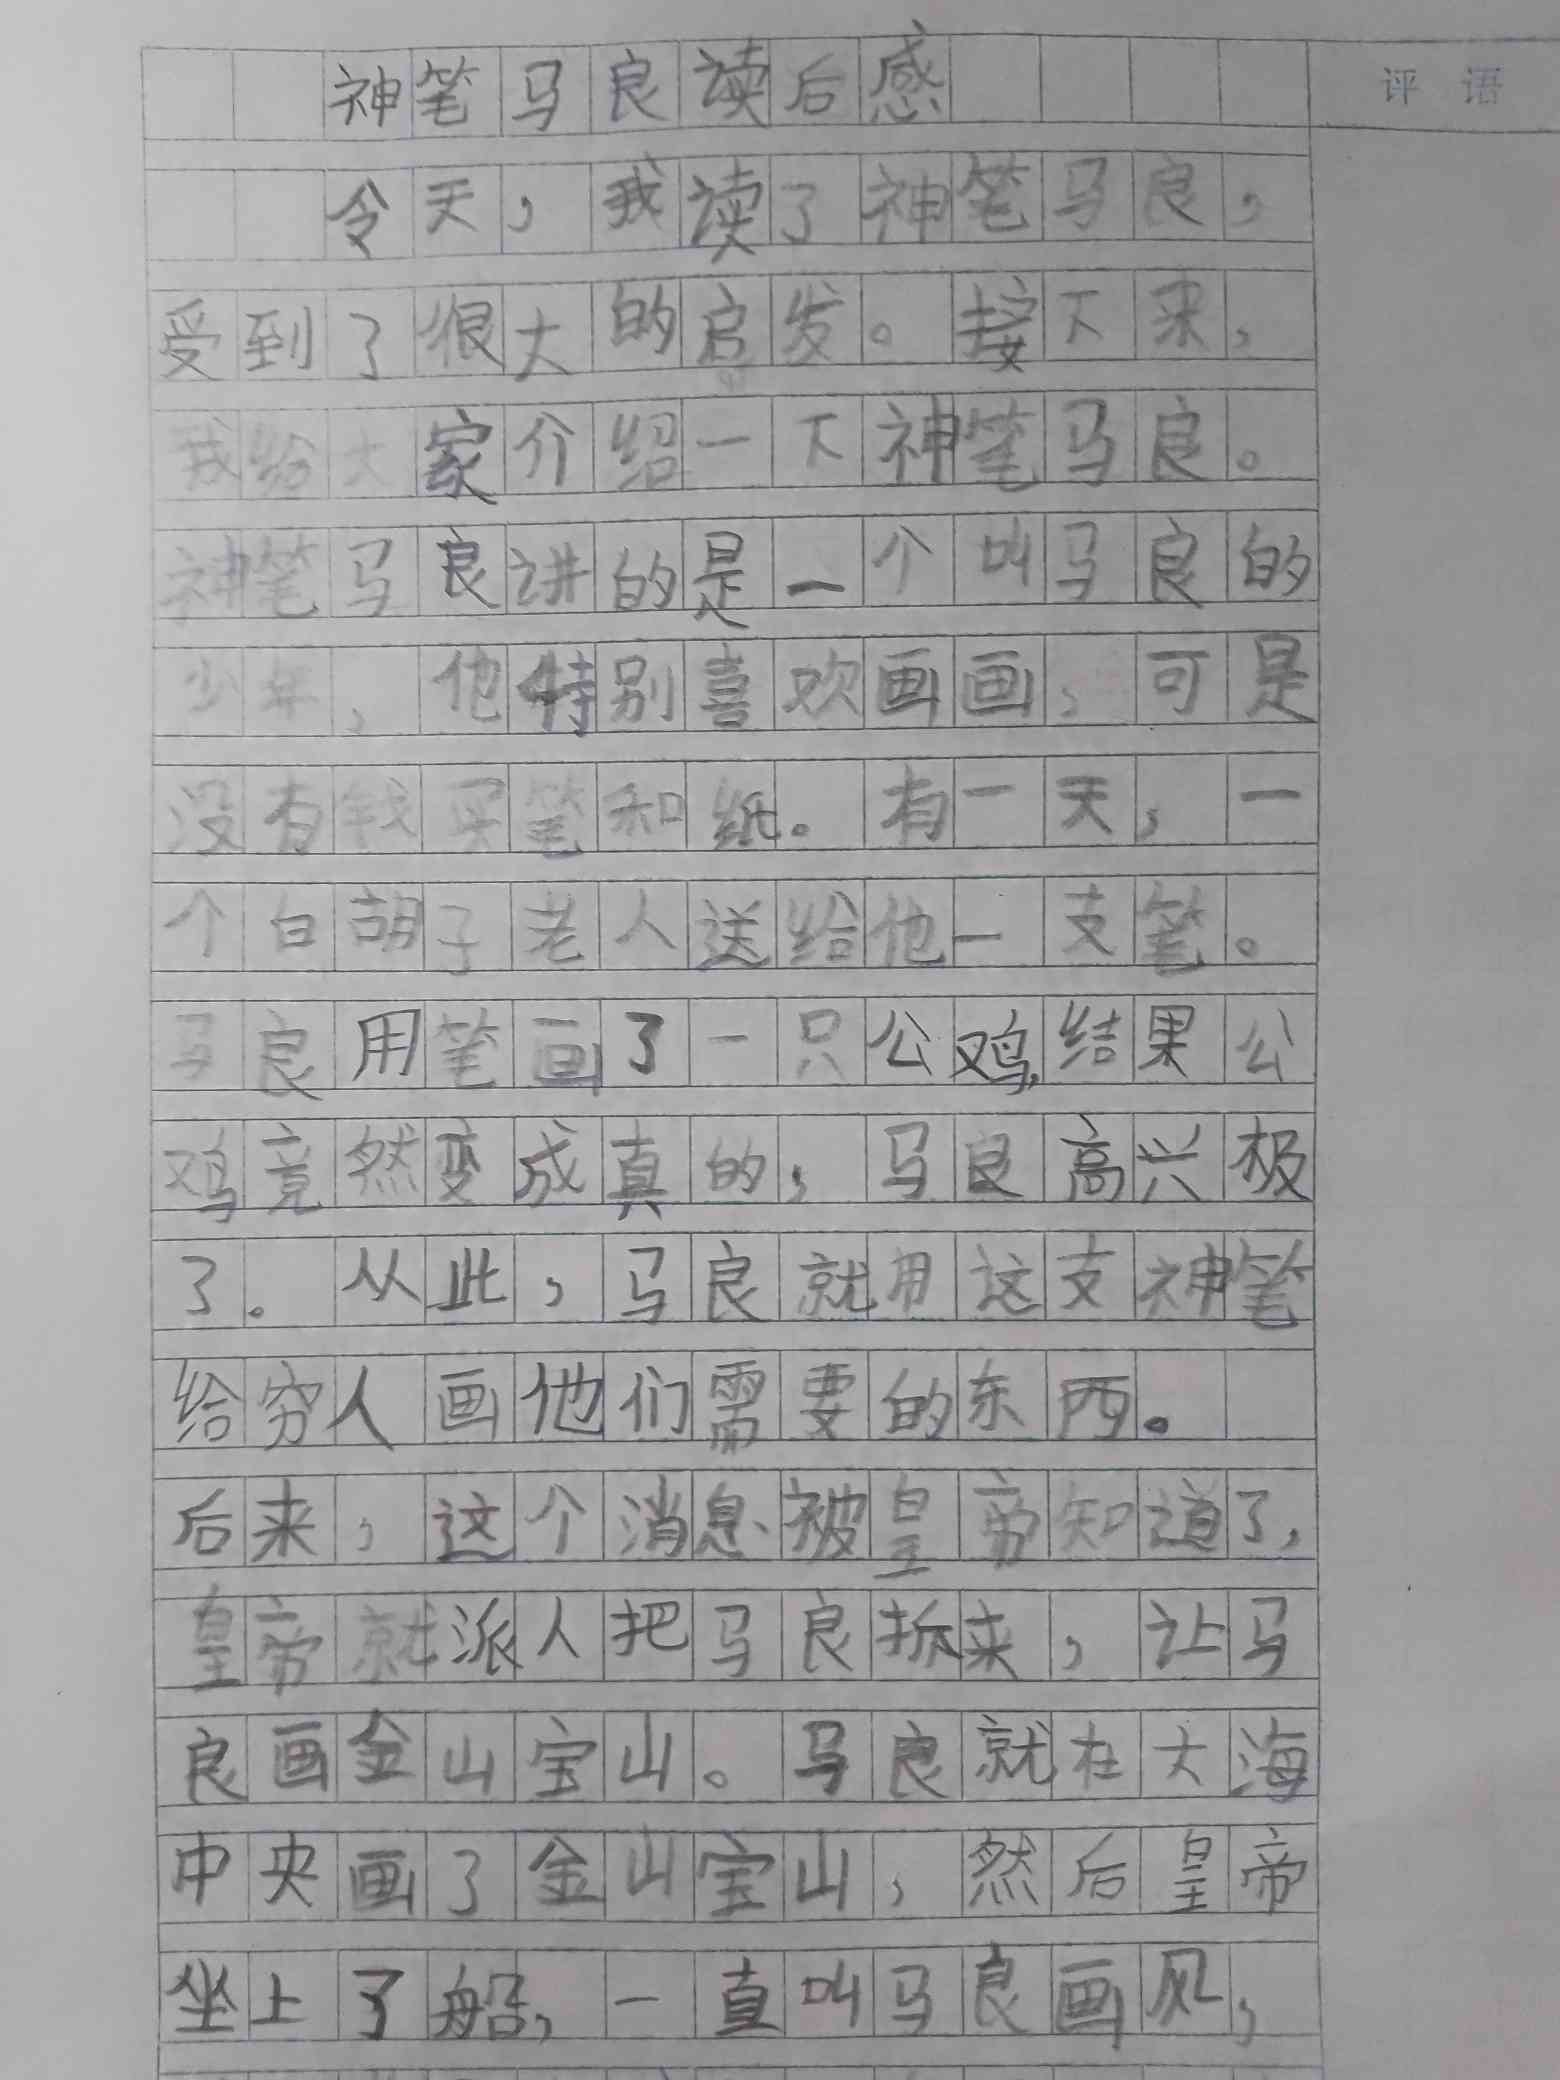 神笔马良读后感
评语
令天，我读了神笔马良，
受到了很大的启发。接下来，
我给大家介绍一下神笔马良。
神笔马良讲的是一个叫马良的
少年，他特别喜欢画画，可是
没有钱买笔和纸。有一天，一
个白胡子老人送给他一支笔。
马良用笔画了一只公鸡，结果公
鸡竟然变成真的，马良高兴极
了。从此，马良就用这支神笔
给穷人画他们需要的东西。
后来，这个消息被皇帝知道了，
皇帝就派人把马良抓来，让马
良画金山宝山。马良就在大海
中央画了金山宝山，然后皇帝
坐上了船，一直叫马良画风，